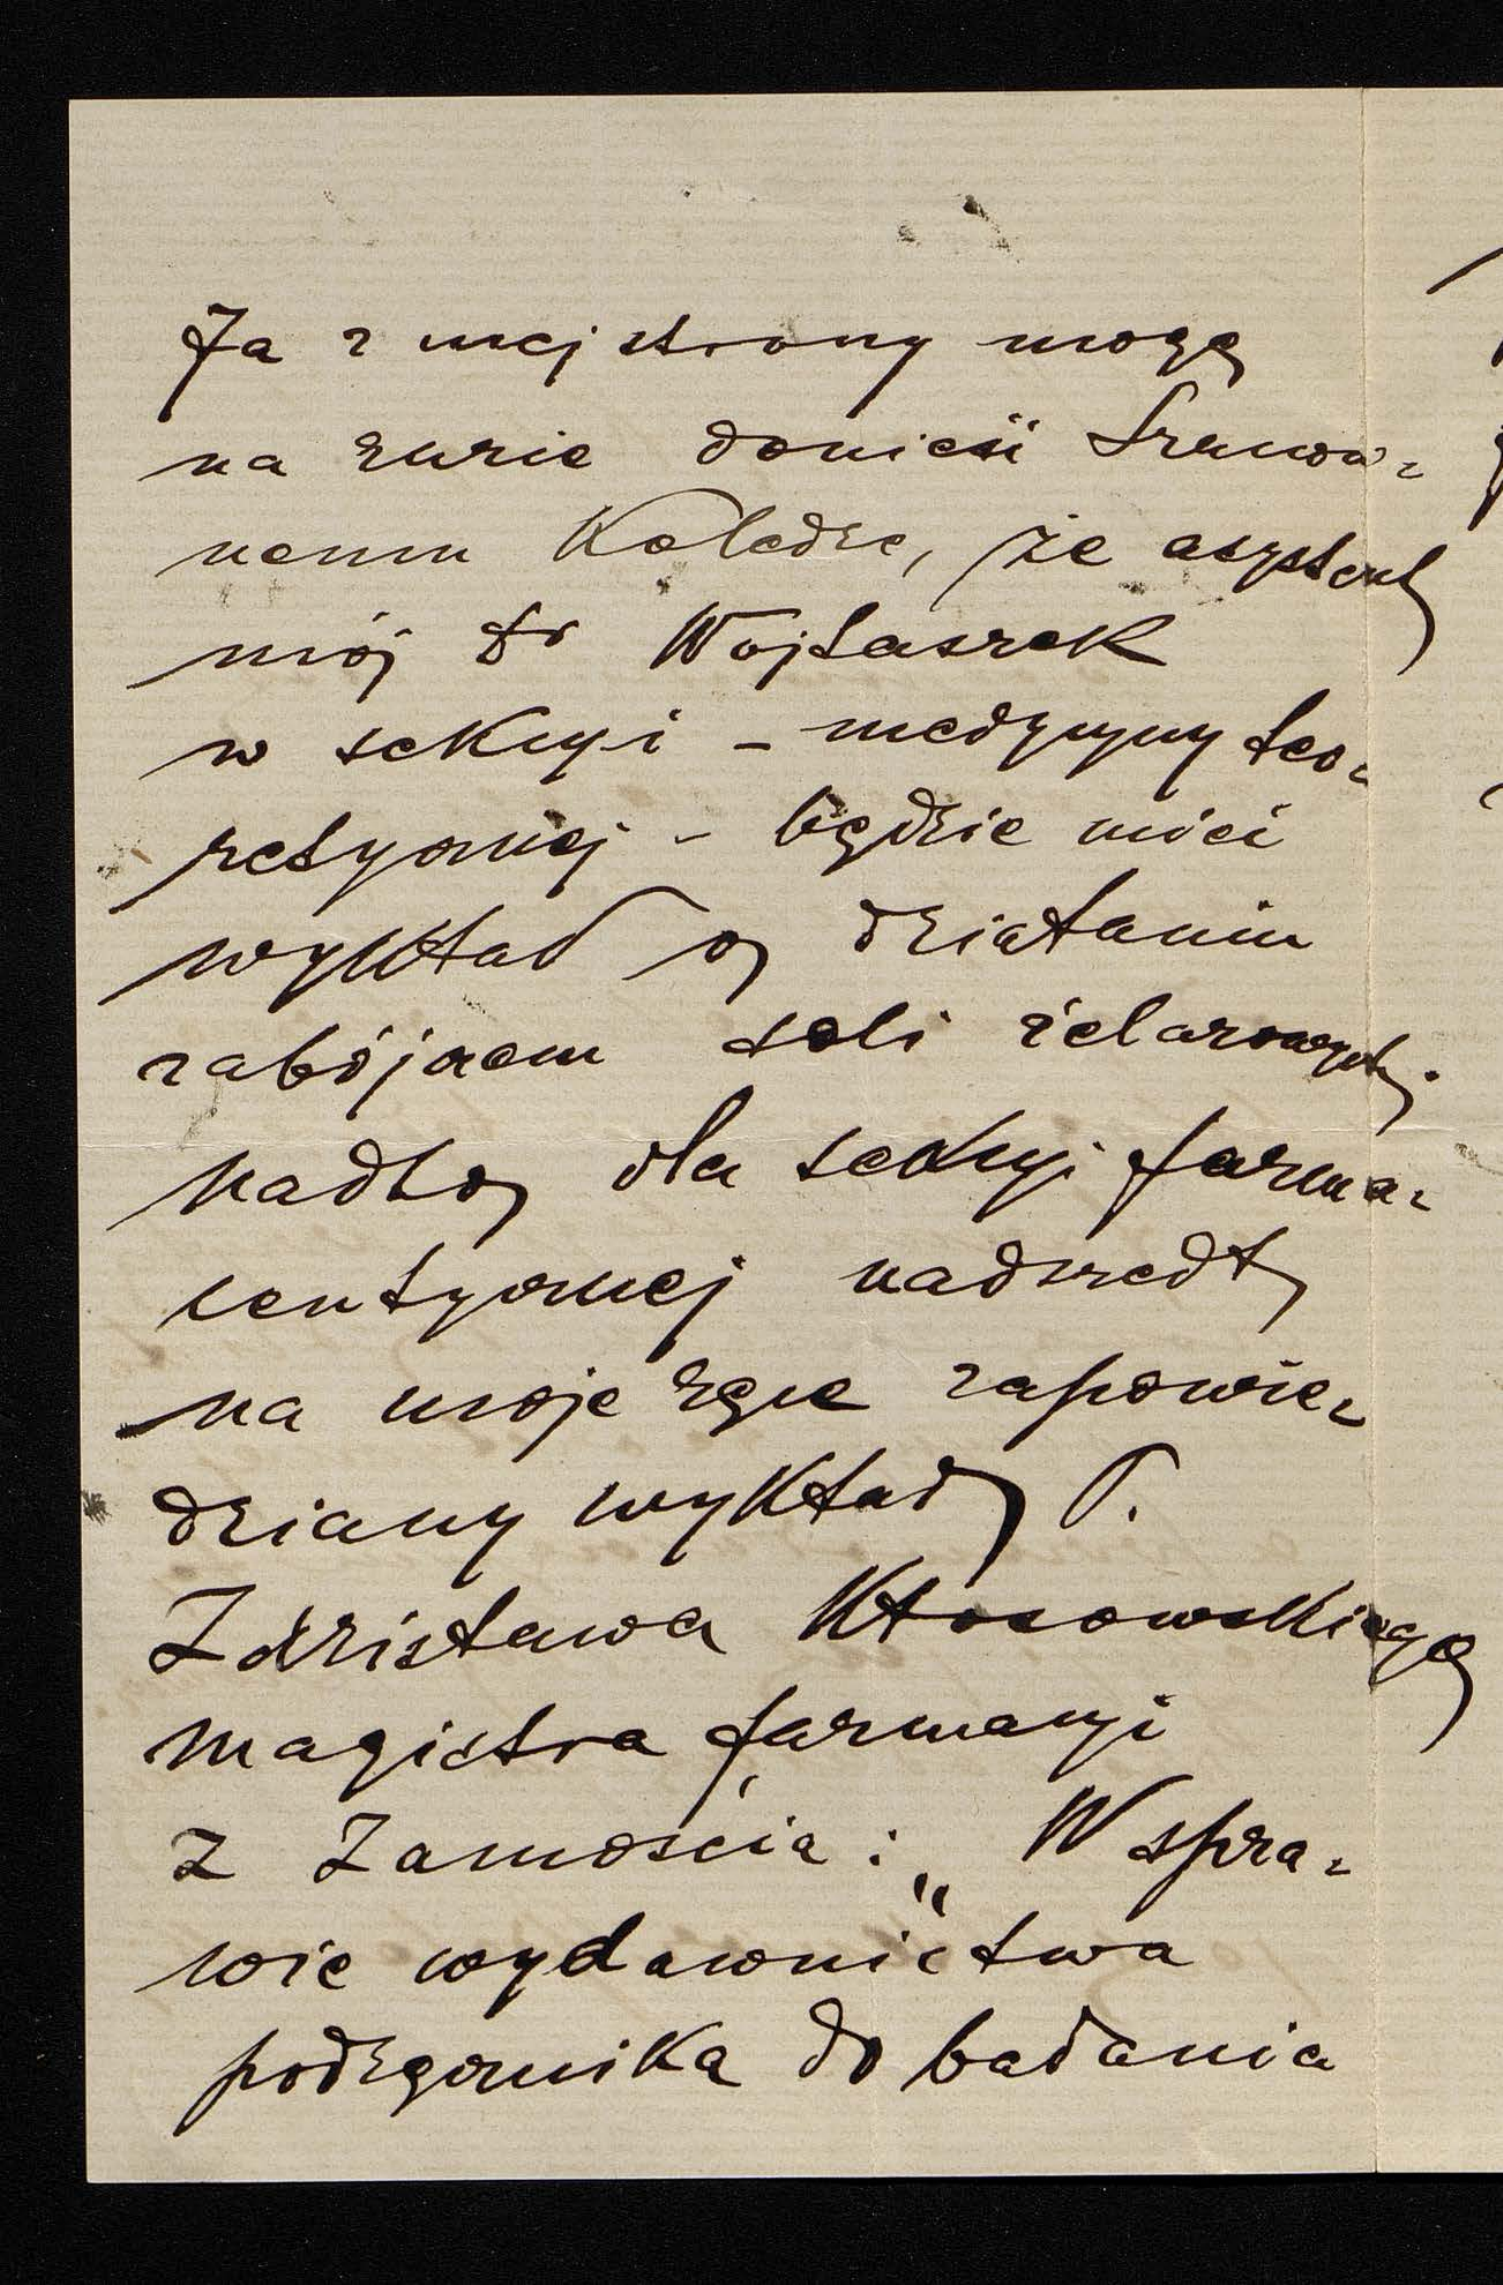 Ja z mej strony mogę
na razie donieść Szanow-
nemu Koledze, że asystent
mój Dr Wojtaszek
w sekcyi - medycyny teo-
retycznej - będzie mieć
wykład o działaniu
zabójczem soli żelazowych.
nadto dla sekcyi farma-
ceutycznej nadszedł
na moje ręce zapowie-
dziany wykład P.
Zdzisława Kłossowskiego
magistra farmacyi
z Zamościa: „W spra-
wie wydawnictwa
podręcznika do badania